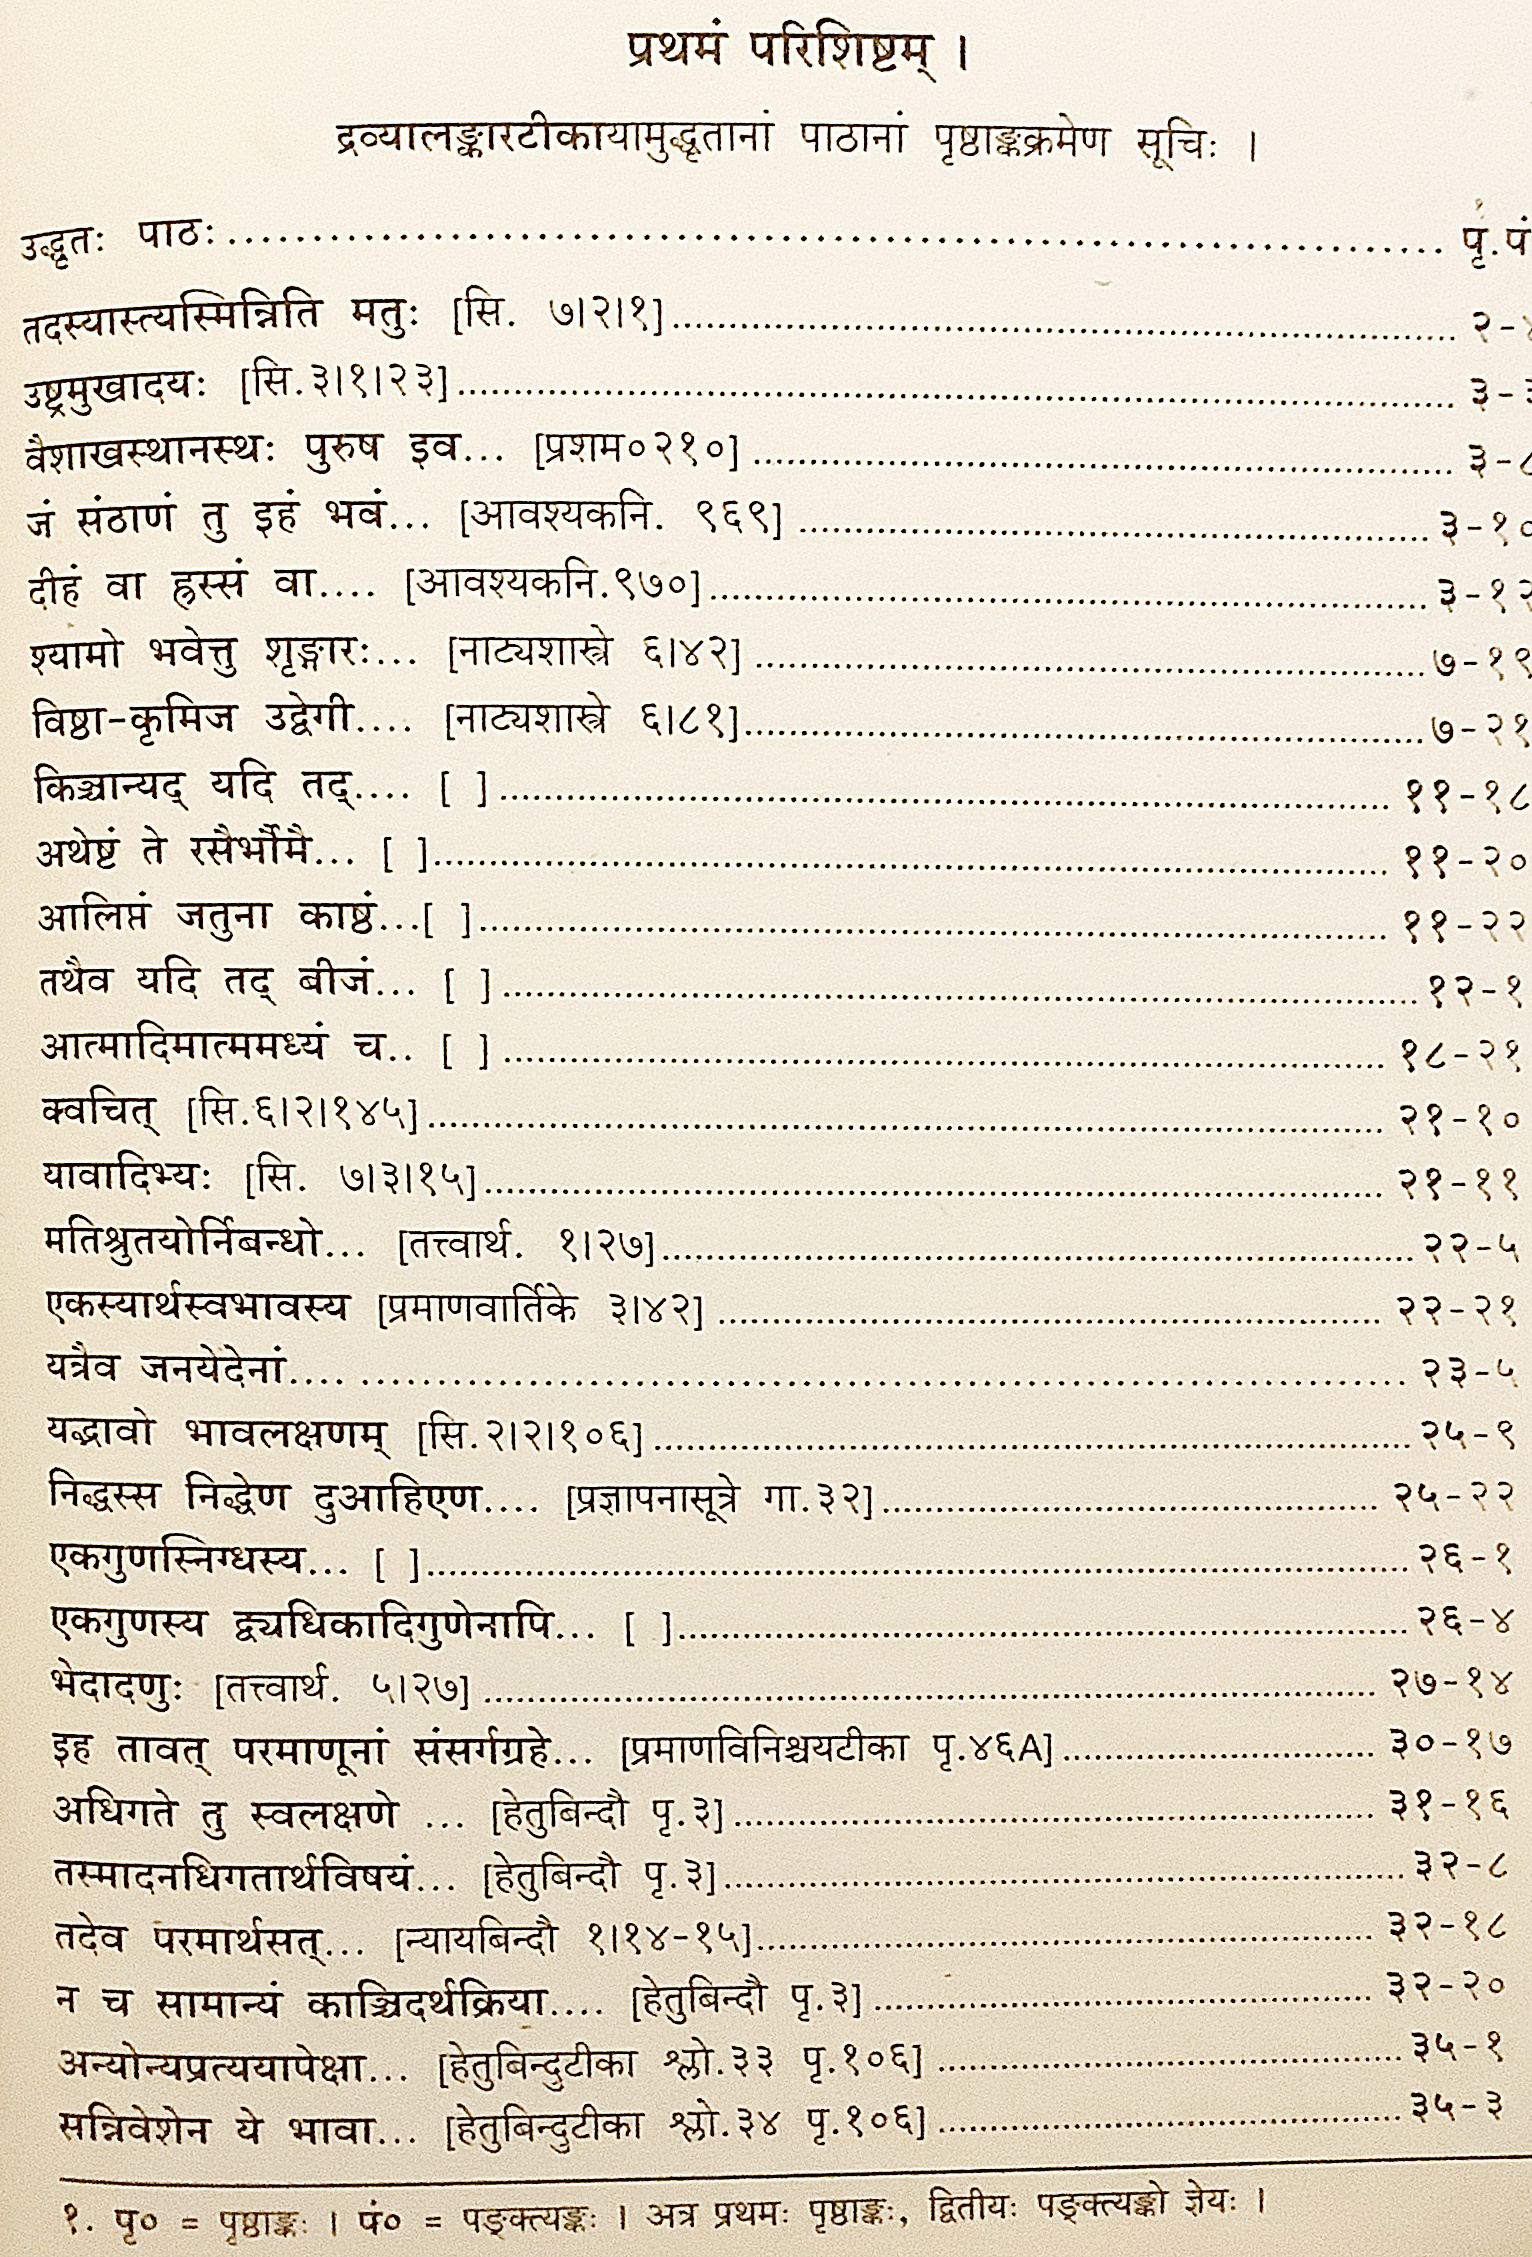 प्रथमं परिशिष्टम् ।
द्रव्यालङ्कारटीकायामुद्धृतानां पाठानां पृष्ठाङ्कक्रमेण सूचिः ।
उद्धृतः पाठः........................................................................ पृ.पं
तदस्यास्त्यस्मिन्निति मतुः [सि. ७।२।१]........................................................................ २-
उष्ट्रमुखादयः [सि.३।१।२३]........................................................................ ३-
वैशाखस्थानस्थः पुरुष इव... [प्रशम०२१०] ........................................................................ ३-८
जं संठाणं तु इहं भवं... [आवश्यकनि. ९६९] ........................................................................ ३-१०
दीहं वा ह्रस्सं वा.... [आवश्यकनि.९७०]........................................................................ ३-१२
श्यामो भवेत्तु शृङ्गारः... [नाट्यशास्त्रे ६।४२] ........................................................................ ७-१९
विष्ठा-कृमिज उद्वेगी.... [नाट्यशास्त्रे ६।८१]........................................................................ ७-२१
किञ्चान्यद् यदि तद्.... [ ] ........................................................................ ११-१८
अथेष्टं ते रसैर्भौमै... [ ]........................................................................ ११-२०
आलिप्तं जतुना काष्ठं...[ ]........................................................................ ११-२२
तथैव यदि तद् बीजं... [ ] ........................................................................ १२-१
आत्मादिमात्ममध्यं च.. [ ] ........................................................................ १८-२१
क्वचित् [सि.६।२।१४५]........................................................................ २१-१०
यावादिभ्यः [सि. ७।३।१५]........................................................................ २१-११
मतिश्रुतयोर्निबन्धो... [तत्त्वार्थ. १।२७]........................................................................ २२-५
एकस्यार्थस्वभावस्य [प्रमाणवार्तिके ३।४२] ........................................................................ २२-२१
यत्रैव जनयेदेनां.... ........................................................................ २३-५
यद्भावो भावलक्षणम् [सि.२।२।१०६] ........................................................................ २५-९
निद्धस्स निद्धेण दुआहिएण.... [प्रज्ञापनासूत्रे गा.३२]........................................................................ २५-२२
एकगुणस्निग्धस्य... [ ]........................................................................ २६-१
एकगुणस्य द्व्यधिकादिगुणेनापि... [ ]........................................................................ २६-४
भेदादणुः [तत्त्वार्थ. ५।२७] ........................................................................ २७-१४
इह तावत् परमाणूनां संसर्गग्रहे... [प्रमाणविनिश्चयटीका पृ.४६A] ................................................ ३०-१७
अधिगते तु स्वलक्षणे ... [हेतुबिन्दौ पृ.३] ........................................................................ ३१-१६
तस्मादनधिगतार्थविषयं... [हेतुबिन्दौ पृ.३]........................................................................ ३२-८
तदेव परमार्थसत्... [न्यायबिन्दौ १।१४-१५]........................................................................ ३२-१८
न च सामान्यं काञ्चिदर्थक्रिया.... [हेतुबिन्दौ पृ.३] ............................................................ ३२-२०
अन्योन्यप्रत्ययापेक्षा... [हेतुबिन्दुटीका श्लो.३३ पृ.१०६] ........................................................ ३५-१
सन्निवेशेन ये भावा... [हेतुबिन्दुटीका श्लो.३४ पृ.१०६] ........................................................ ३५-३
१. पृ० = पृष्ठाङ्कः । पं० = पङ्क्त्यङ्कः । अत्र प्रथमः पृष्ठाङ्कः, द्वितीयः पङ्क्त्यङ्को ज्ञेयः ।